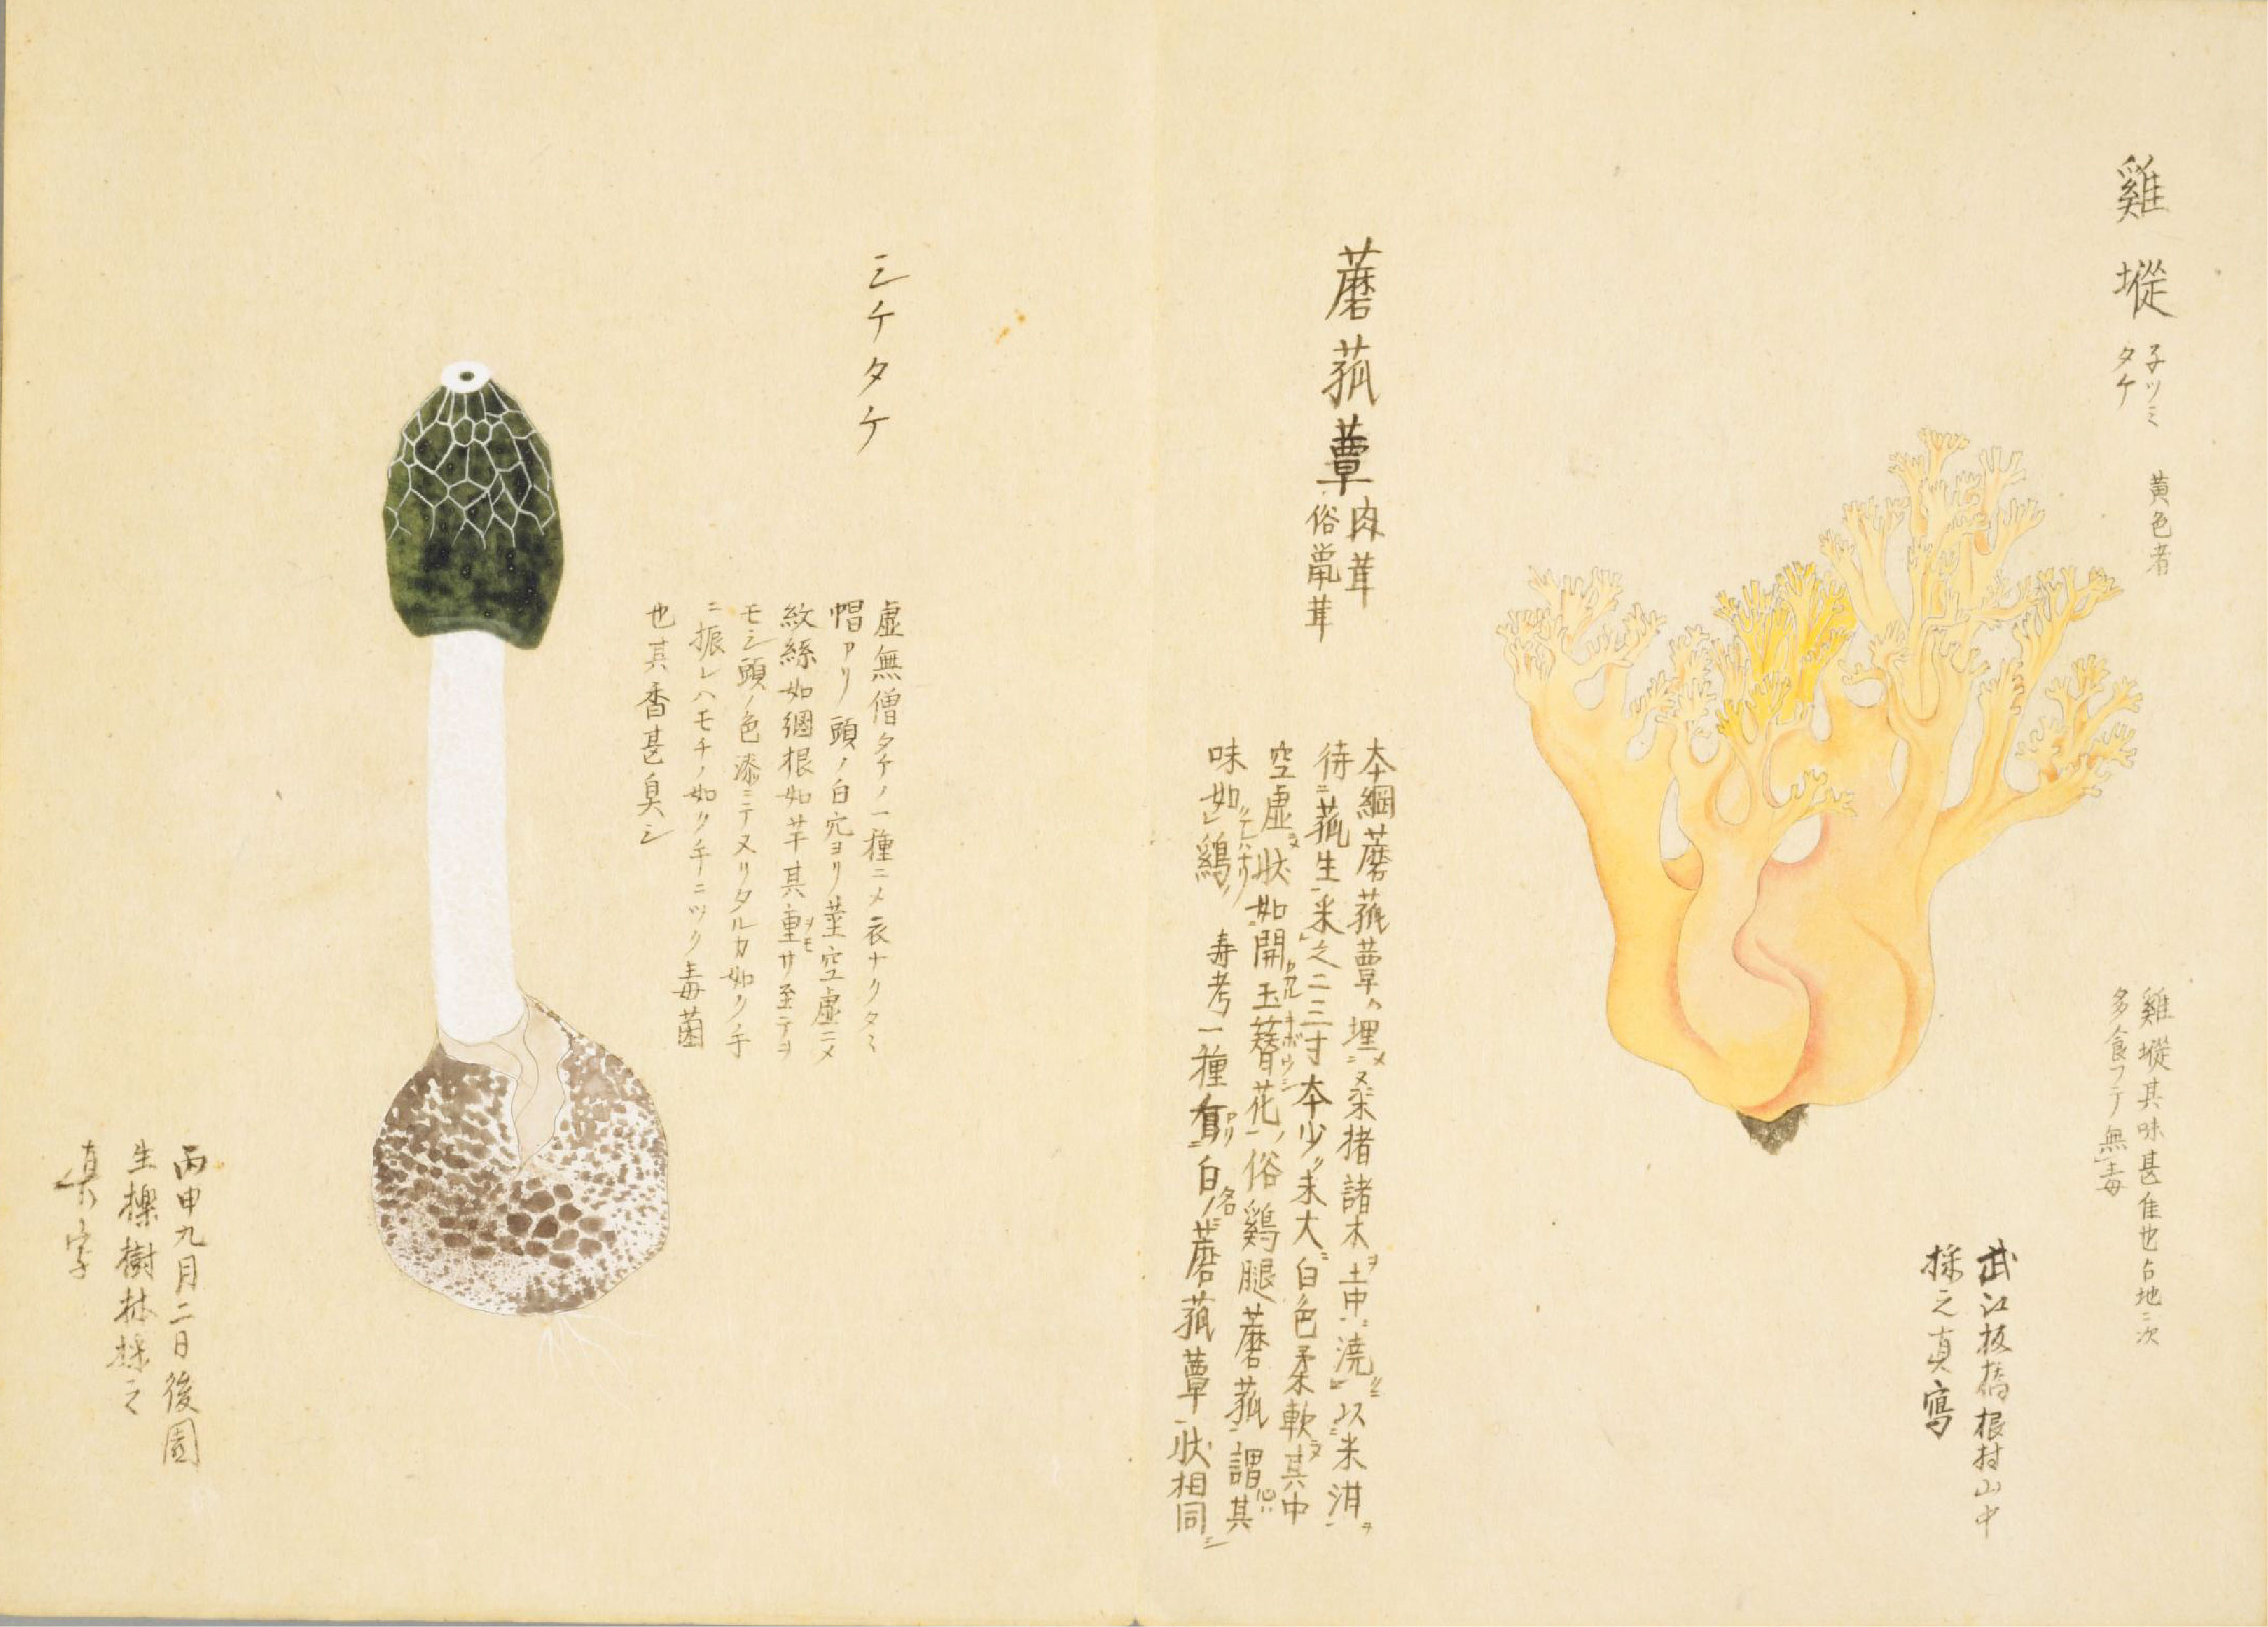 雞㙡 子ツミタケ 黄色者
雞㙡其味甚佳也占地ニ次
多食フテ無毒
武江板橋根村山中
採之真寫
蘑菰蕈 肉茸 俗鼡茸
本綱蘑菰蕈ハ埋メニ桑猪諸木ヲ土中ニ澆クニ以米泔ヲ
待ニ菰生采之二三寸本少末大白色柔軟ニヲ其中
空虚ヲ状如開玉簪花ノ俗鷄腿蘑菰謂其
味如鷄ノ 寿考一種有白ノ名蘑菰蕈状相同ニ
シケタケ
虚無僧タケノ一種ニメ衣ナクタミ
帽アリ頭ノ白穴ヨリ莖空虚ニメ
紋絲如網根如芋其重サ至テヲ
モシ頭ノ色漆ニテヌリタルカ如クノ手
ニ振レハモチノ如ク手ニツク毒菌
也其香甚臭シ
丙申九月二日後園
生櫟樹林採之
真写